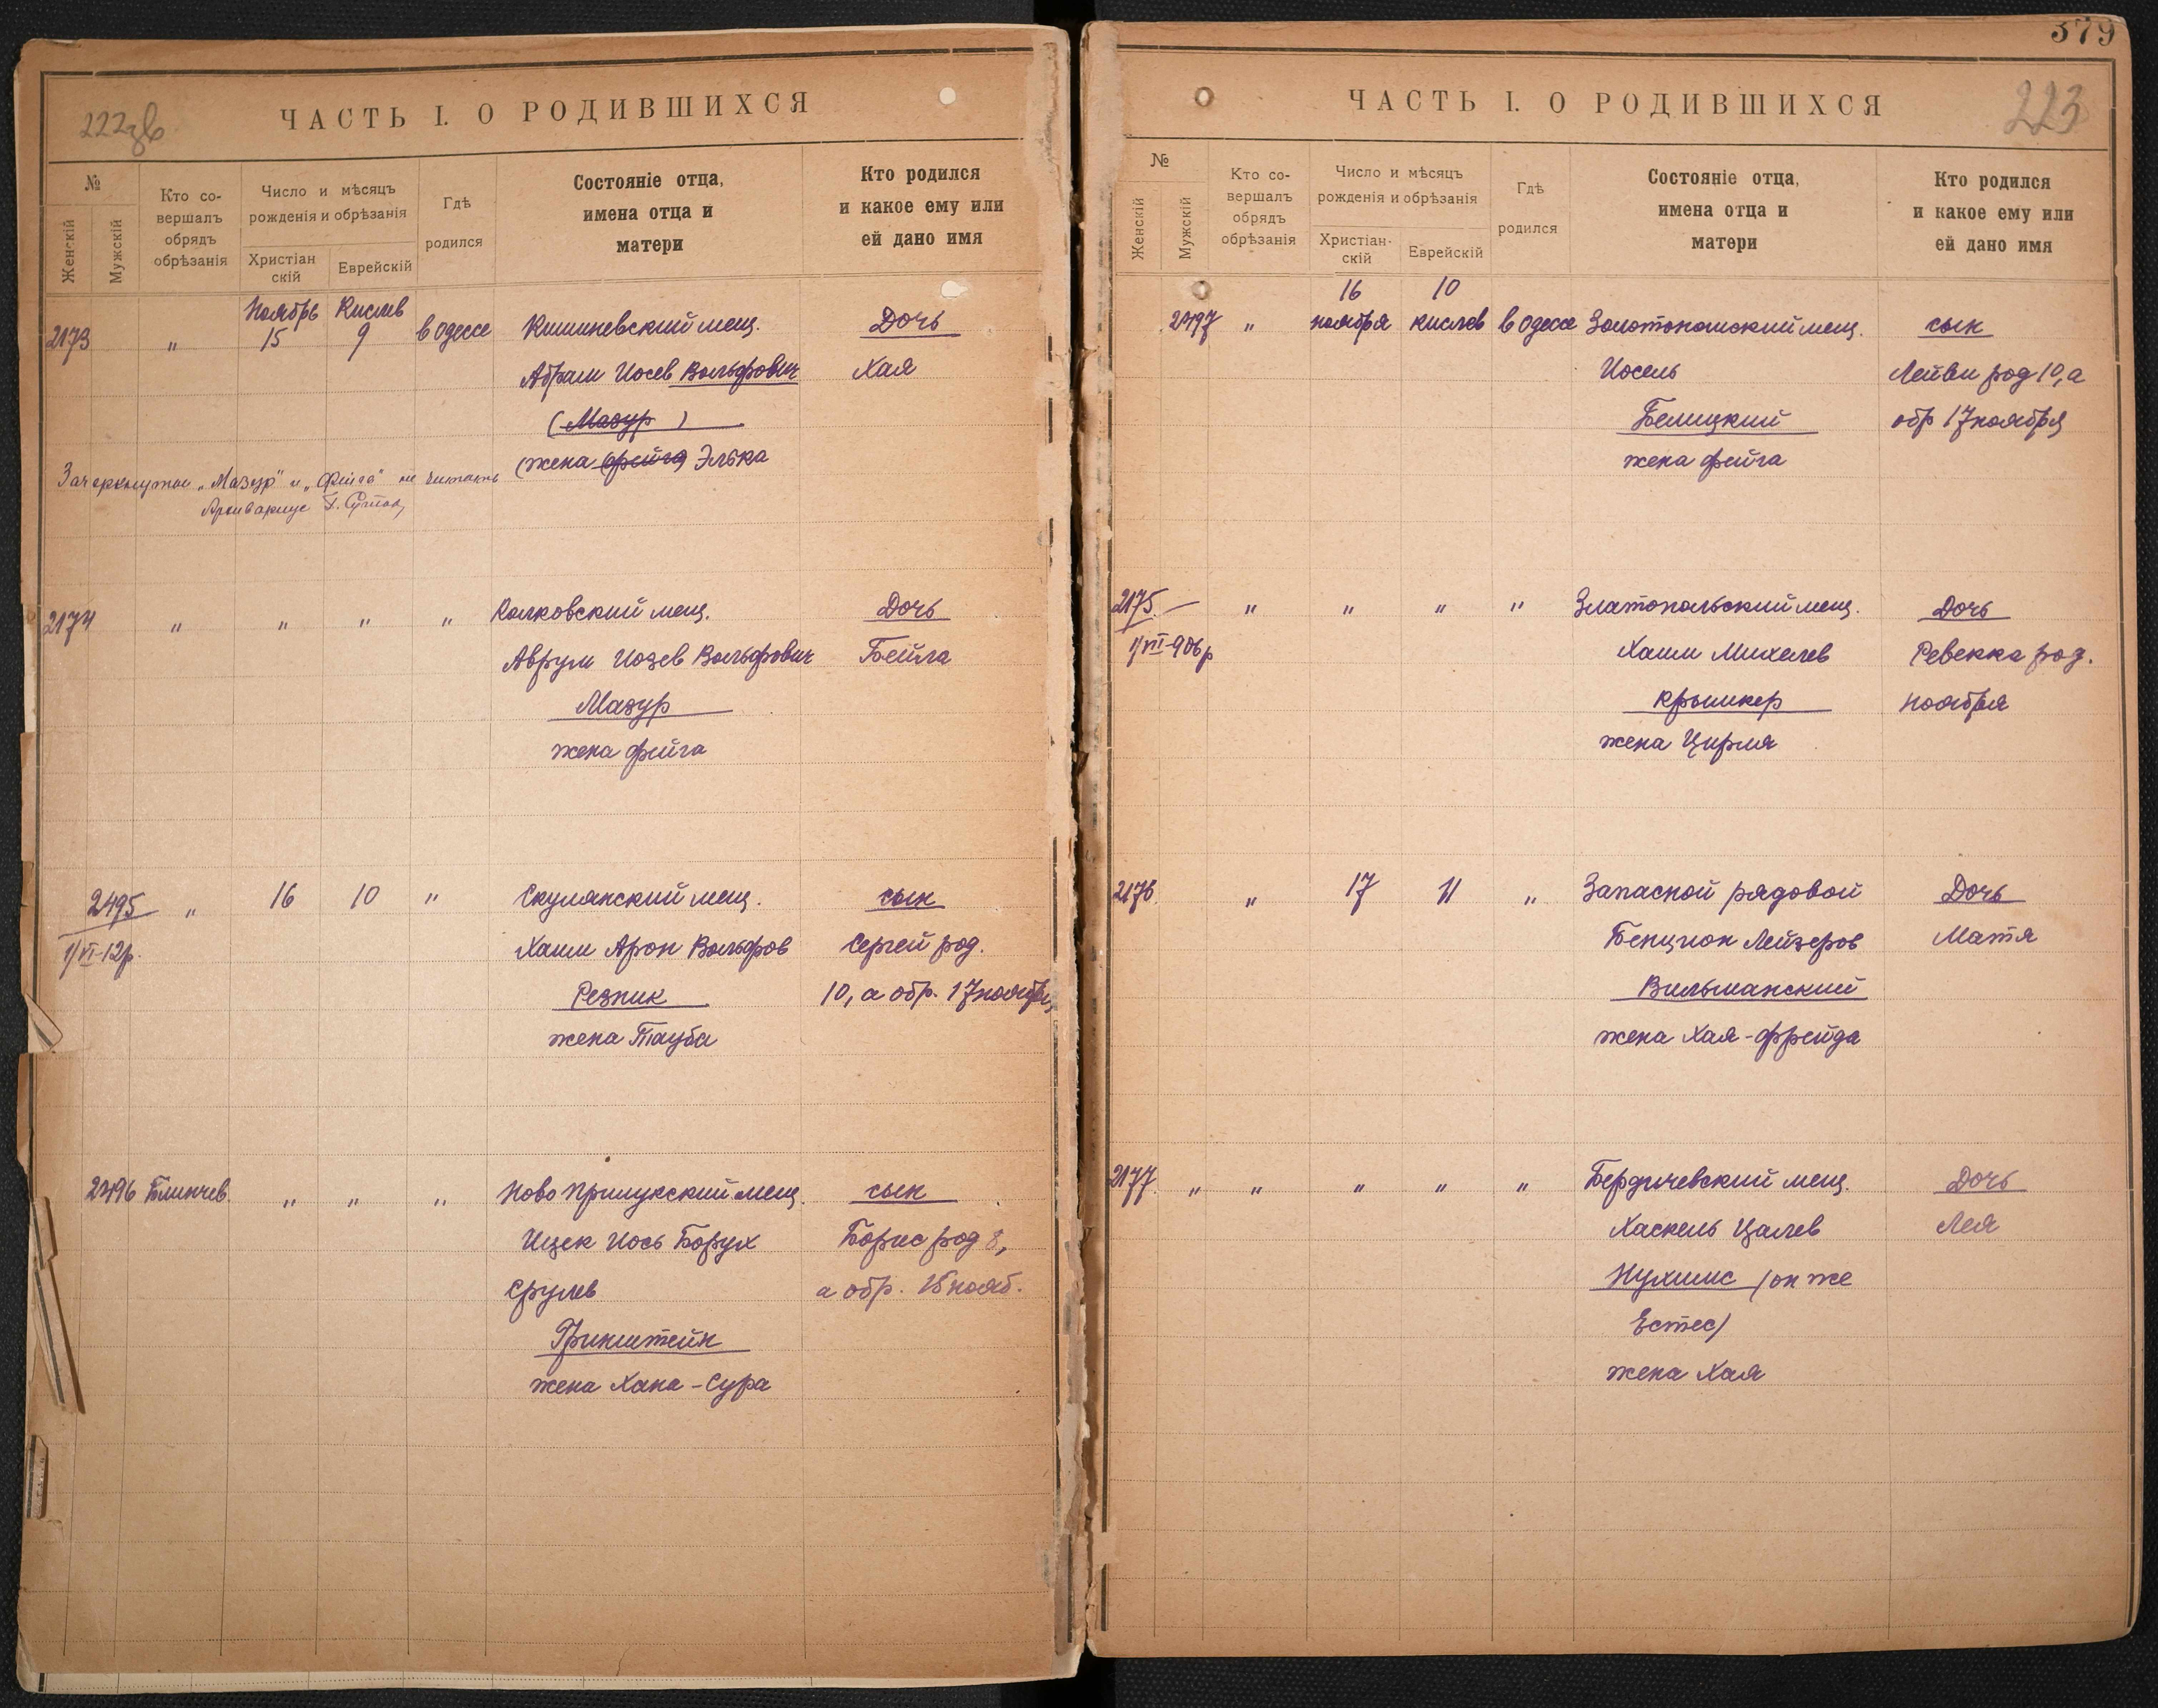 222об
ЧАСТЬ I. О РОДИВШИХСЯ
№
Женскій
Мужскій
Кто со-
вершалъ
обрядъ
обрѣзанія
Число и мѣсяцъ
рожденія и обрѣзанія
Христіан
скій
Еврейскій
Гдѣ
родился
Состояніе отца,
имена отца и
матери
Кто родился
и какое ему или
ей дано имя
Ноябрь Кислев
2173 " 15 9 в Одессе Кишиневский мещ. Дочь
Абрам Иосев Вольфович Хая
(Мазур)
(жена (Фейга) Элька
Зачеркнутое „Мазур" и „Фейга" не читать
Архивариус
2174 " " " " Колковский мещ. Дочь
Аврум Иозев Вольфович Бейла
Мазур
жена Фейга
2495 " 16 10 " Скулянский мещ. сын
1/VI-12р. Хаим Арон Вольфов Сергей род.
Резник 10, а обр. 17 ноября
жена Тауба
2496 Блинчев " " " Ново Прилукский мещ. сын
Ицек Иось Борух Борис род 8,
Срулев а обр. 15 нояб.
Гринштейн
жена Хана-Сура
379
223
ЧАСТЬ I. О РОДИВШИХСЯ
№
Женскій
Мужскій
Кто со-
вершалъ
обрядъ
обрѣзанія
Число и мѣсяцъ
рожденія и обрѣзанія
Христіан-
скій
Еврейскій
Гдѣ
родился
Состояніе отца,
имена отца и
матери
Кто родился
и какое ему или
ей дано имя
16 10
2497 " ноября кислев в Одессе Золотоношский мещ. сын
Иосель Лейви род 10, а
Белицкий обр 17 ноября
жена Фейга
2175 " " " " Златопольский мещ. Дочь
1/VII-906р Хаим Михелев Ревекка род.
Крымкер ноября
жена Цирля
2176 " 17 11 " Запасной рядовой Дочь
Бенцион Лейзеров Матя
Вильшанский
жена Хая-Фрейда
2177 " " " " " Бердичевский мещ. Дочь
Хаскель Цалев Лея
Нухимс /он же
Естес/
жена Хая